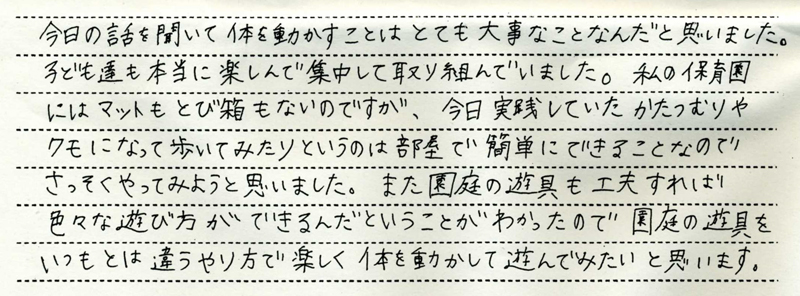 今日の話を聞いて体を動かすことはとても大事なことなんだと思いました。
子ども達も本当に楽しんで集中して取り組んでいました。私の保育園
にはマットもとび箱もないのですが、今日実践していたかたつむりや
クモになって歩いてみたりというのは部屋で簡単にできることなので
さっそくやってみようと思いました。また園庭の遊具も工夫すれば
色々な遊び方ができるんだということがわかったので園庭の遊具を
いつもとは違うやり方で楽しく体を動かして遊んでみたいと思います。